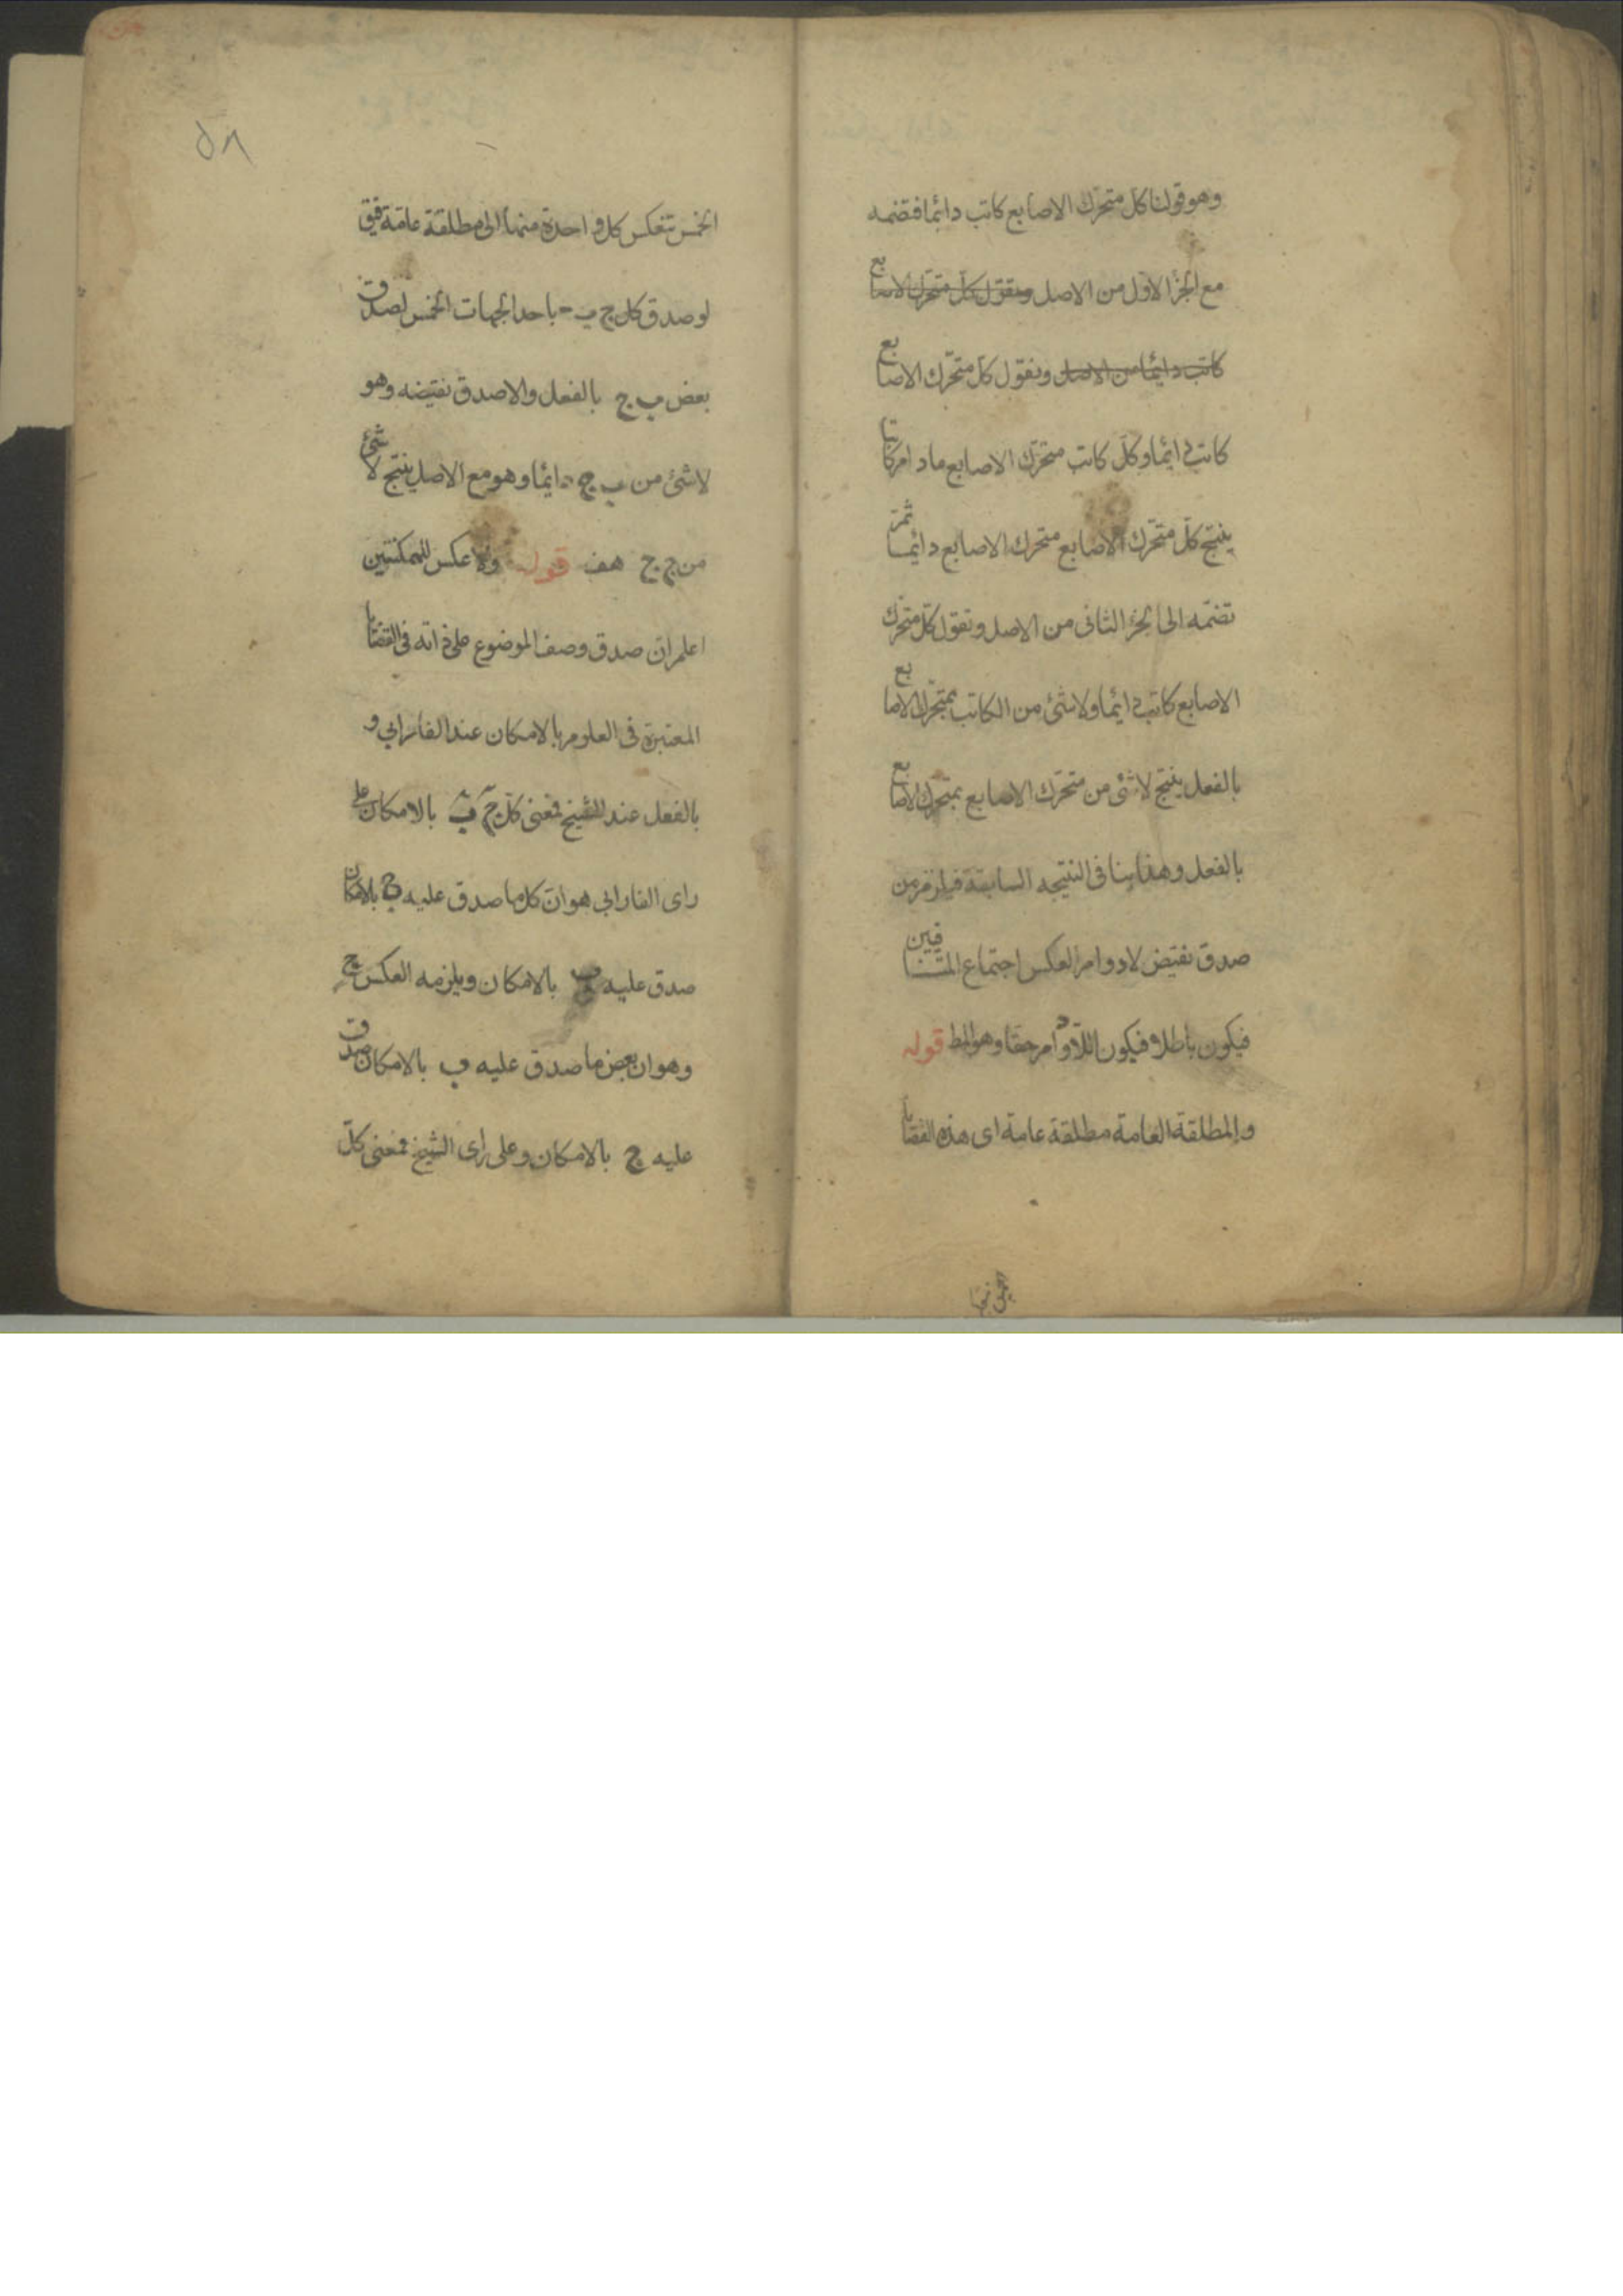 وهو قولنا كل متحرك الاصابع كاتب دائما فنضمه
مع الجزء الاول من الاصل ونقول كل متحرك الاصابع
كاتب دائما من الاصل ونقول كل متحرك الاصابع
كاتب دائما وكل كاتب متحرك الاصابع مادام كاتبا
ينتج كل متحرك الاصابع متحرك الاصابع دائما ثم
نضمه الى الجزء الثانى من الاصل ونقول كل متحرك
الاصابع كاتب دائما ولا شئ من الكاتب بمتحرك الاصابع
بالفعل ينتج لا شئ من متحرك الاصابع بمتحرك الاصابع
بالفعل وهذا ينافى النتيجه السابقة فيلزم من
صدق نقيض لادوام العكس اجتماع المتنافيين
فيكون باطلا فيكون اللادوام حقا وهو المط قوله
والمطلقة العامة مطلقة عامة اى هذه القضايا
٥٨
الخمس تنعكس كل واحدة منها الى مطلقة عامة فيق
لو صدق كل ج ب باحد الجهات الخمس لصدق
بعض ب ج بالفعل والا صدق نقيضه وهو
لا شئ من ب ج دائما وهو مع الاصل ينتج لا شئ
من ج ج هف قوله ولا عكس للممكنتين
اعلم ان صدق وصف الموضوع على ذاته فى القضايا
المعتبرة فى العلوم بالامكان عند الفارابي و
بالفعل عند الشيخ فمعنى كل ج ب بالامكان على
راى الفارابى هو ان كل ما صدق عليه ج بالامكان
صدق عليه ب بالامكان ويلزمه العكس ج
وهو ان بعض ما صدق عليه ب بالامكان صدق
عليه ج بالامكان وعلى راى الشيخ فمعنى كل